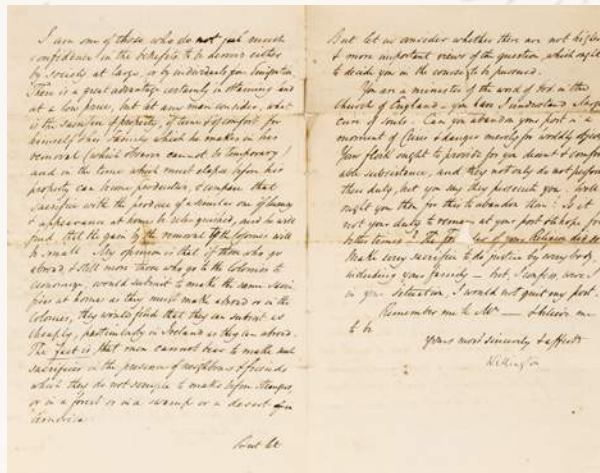 I am one of those who do not feel much
confidence in the benefits to be derived either
by Society at large, or by individuals from Emigration.
There is a great advantage certainly in obtaining land
at a low price, but let any man consider, what
is the sacrifice of property, of time & of comfort for
himself & his Family which he makes in his
removal (which of course cannot be temporary)
and in the time which must elapse before his
property can become productive, & compare that
sacrifice with the produce of a similar one of luxury
& appearance at home to be relinquished, and he will
find that the gain by the removal to the Colonies will
be small. My opinion is that if those who go
abroad, & still more those who go to the Colonies to
economise, would submit to make the same sacri
fices at home as they must make abroad or in the
Colonies, they would find that they can subsist as
cheaply, particularly in Ireland as they can abroad.
The fact is that men cannot bear to make such
sacrifices in the presence of neighbours & friends
which they do not scruple to make before strangers,
or in a forest or in a swamp or a desert in
America.
But let
But let us consider whether there are not higher
& more important views of the question, which ought
to decide you in the course to be pursued.
You are a minister of the word of God in the
Church of England - you have I understand a large
cure of souls. Can you abandon your post in a
moment of Crisis & danger merely for worldly objects
Your flock ought to provide for you decent & comfort
able subsistence, and they not only do not perform
their duty, but you say they persecute you. Well
ought you then for this to abandon them? Is it
not your duty to remain at your post & to hope for
better times? The of your Religion did so
Make every sacrifice to do justice by every body,
including your family - but I confess, were I
in your situation, I would not quit my post.
Remember me to Mrs — & believe me
to be
Yours most sincerely & affectly
Wellington